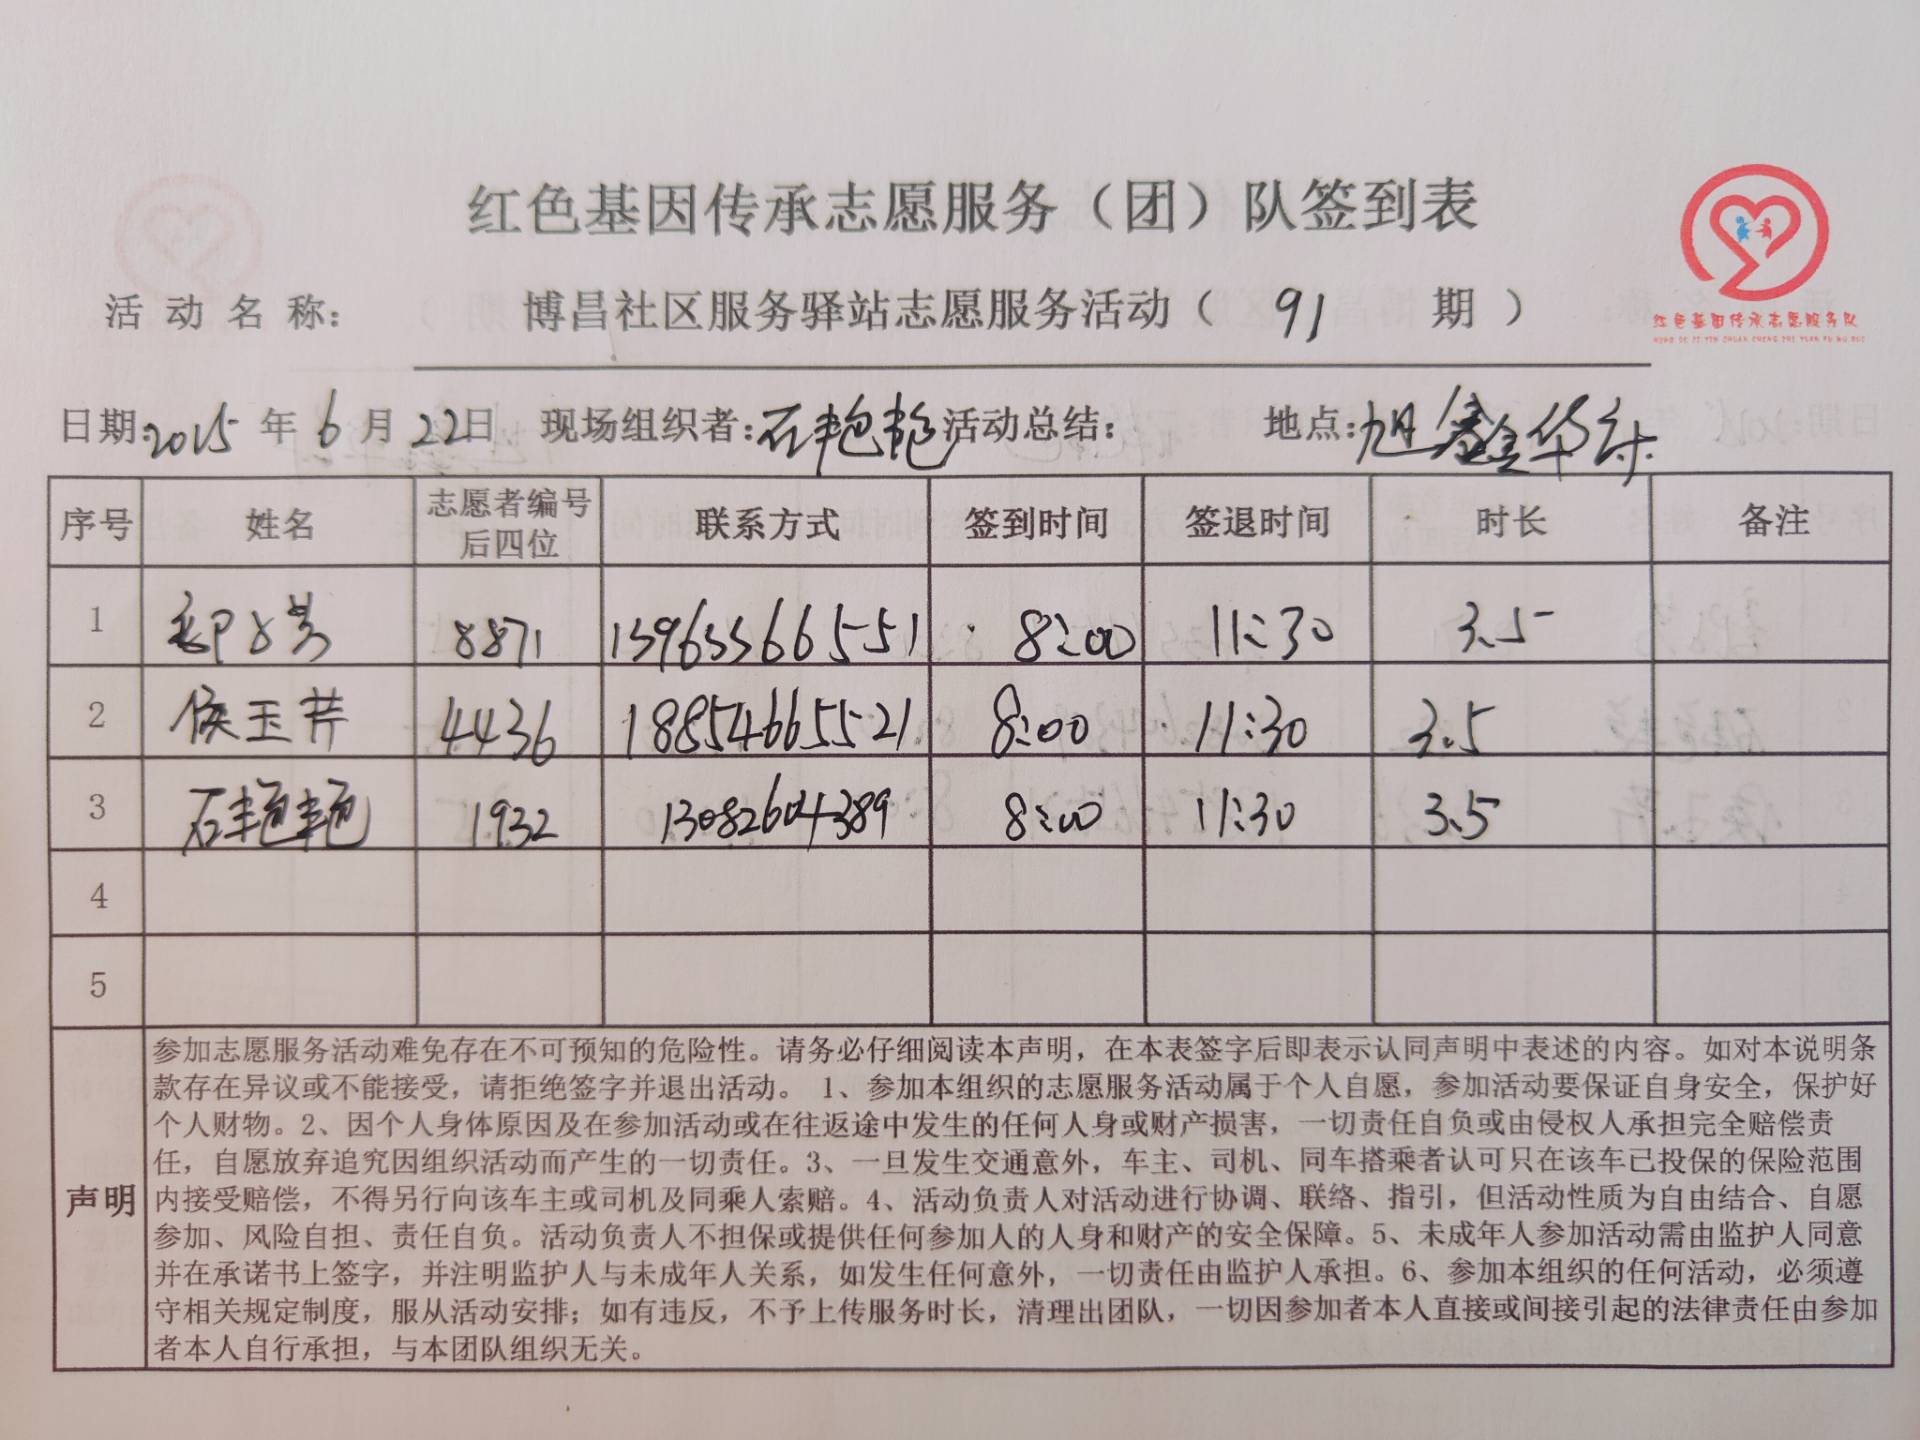 红色基因传承志愿服务（团）队签到表
红色基因传承志愿服务队
HONG SE JI YIN CHUAN CHENG ZHI YUAN FU WU DUI
活动名称： 博昌社区服务驿站志愿服务活动（ 91 期 ）
日期：2015 年 6 月 22日 现场组织者：石艳艳 活动总结： 地点：旭鑫华府
序号 姓名 志愿者编号后四位 联系方式 签到时间 签退时间 时长 备注
1 8871 13963566551 8:00 11:30 3.5
2 侯玉芹 4436 18854665521 8:00 11:30 3.5
3 石艳艳 1932 13082604389 8:00 11:30 3.5
4
5
声明
参加志愿服务活动难免存在不可预知的危险性。请务必仔细阅读本声明，在本表签字后即表示认同声明中表述的内容。如对本说明条
款存在异议或不能接受，请拒绝签字并退出活动。 1、参加本组织的志愿服务活动属于个人自愿，参加活动要保证自身安全，保护好
个人财物。2、因个人身体原因及在参加活动或在往返途中发生的任何人身或财产损害，一切责任自负或由侵权人承担完全赔偿责
任，自愿放弃追究因组织活动而产生的一切责任。3、一旦发生交通意外，车主、司机、同车搭乘者认可只在该车已投保的保险范围
内接受赔偿，不得另行向该车主或司机及同乘人索赔。4、活动负责人对活动进行协调、联络、指引，但活动性质为自由结合、自愿
参加、风险自担、责任自负。活动负责人不担保或提供任何参加人的人身和财产的安全保障。5、未成年人参加活动需由监护人同意
并在承诺书上签字，并注明监护人与未成年人关系，如发生任何意外，一切责任由监护人承担。6、参加本组织的任何活动，必须遵
守相关规定制度，服从活动安排；如有违反，不予上传服务时长，清理出团队，一切因参加者本人直接或间接引起的法律责任由参加
者本人自行承担，与本团队组织无关。